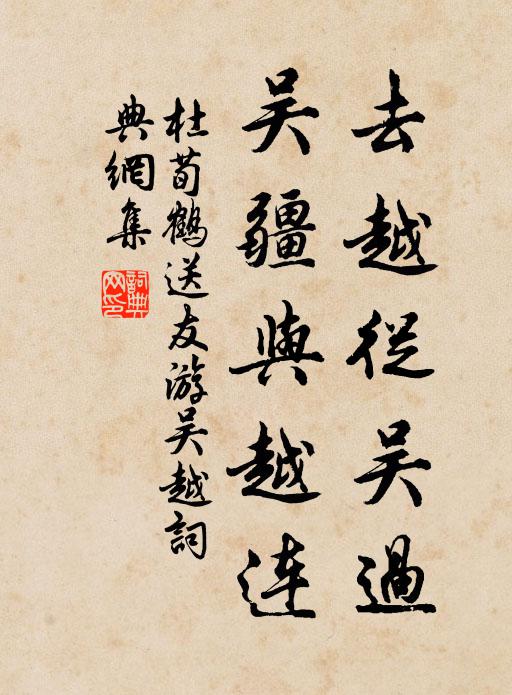 去越從吴過
吴疆與越連
杜荀鶴送友游吴越詞
典網集
詞典
网印